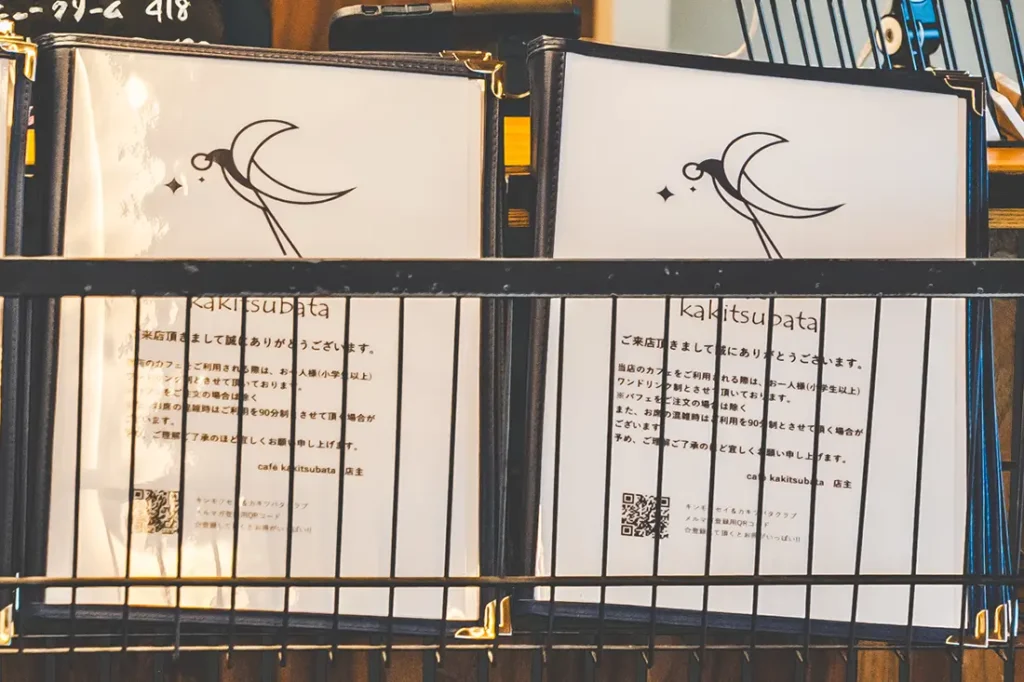 ュークリーム 418
kakitsubata
来店頂きまして誠にありがとうございます。
のカフェをご利用される際は、お一人様(小学生以上)
ンク制とさせて頂いております。
をご注文の場合は除く
お席の混雑時はご利用を90分制とさせて頂く場合が
います。
ご理解ご了承のほど宜しくお願い申し上げます。
café kakitsubata 店主
キンモクセイ&カキツバタクラブ
メルマガ登録用QRコード
会登録して頂くとお得がいっぱい!!
kakitsubata
ご来店頂きまして誠にありがとうございます。
当店のカフェをご利用される際は、お一人様(小学生以上)
ワンドリンク制とさせて頂いております。
※パフェをご注文の場合は除く
また、お席の混雑時はご利用を90分制とさせて頂く場合が
ございます
予め、ご理解ご了承のほど宜しくお願い申し上げます。
café kakitsubata 店主
キンモクセイ&カキツバタクラブ
メルマガ登録用QRコード
会登録して頂くとお得がいっぱい!!